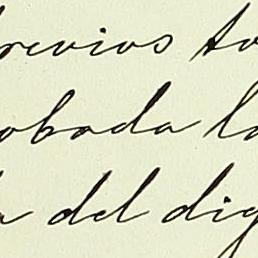 previos to
obada la
a del dig